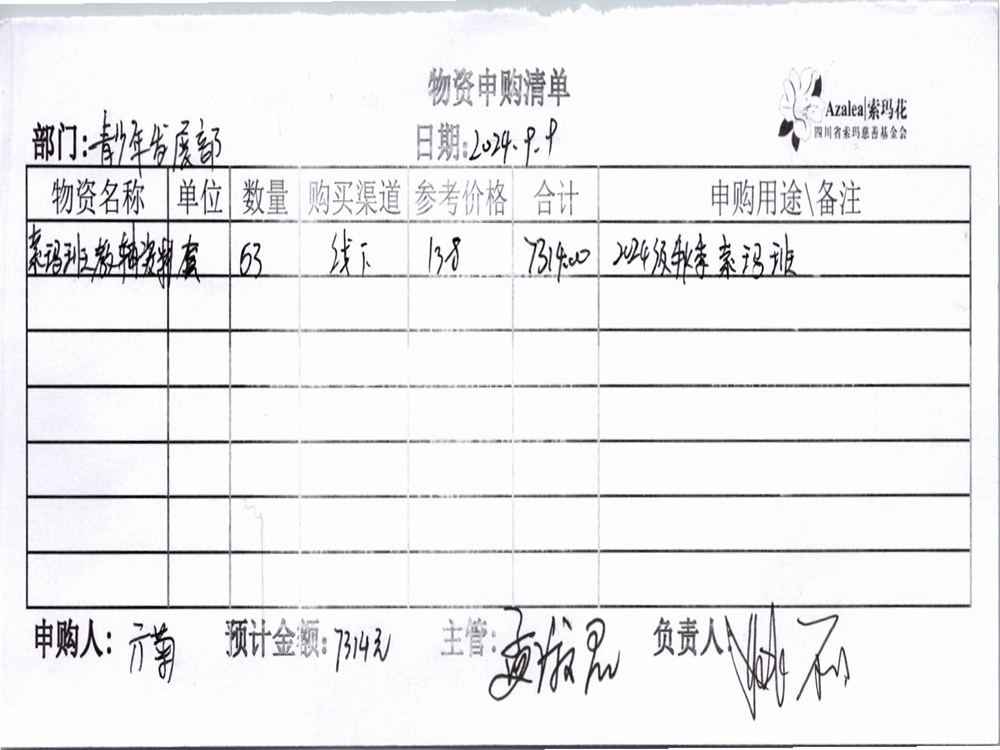 物资申购清单
Azalea|索玛花
四川省索玛慈善基金会
部门:青少年发展部 日期:2024.9.9
物资名称 单位 数量 购买渠道 参考价格 合计 申购用途\备注
索玛班教辅资料 套 63 线下 138 7314.00 2024级秋季索玛班
申购人: 预计金额:7314元 主管: 负责人: